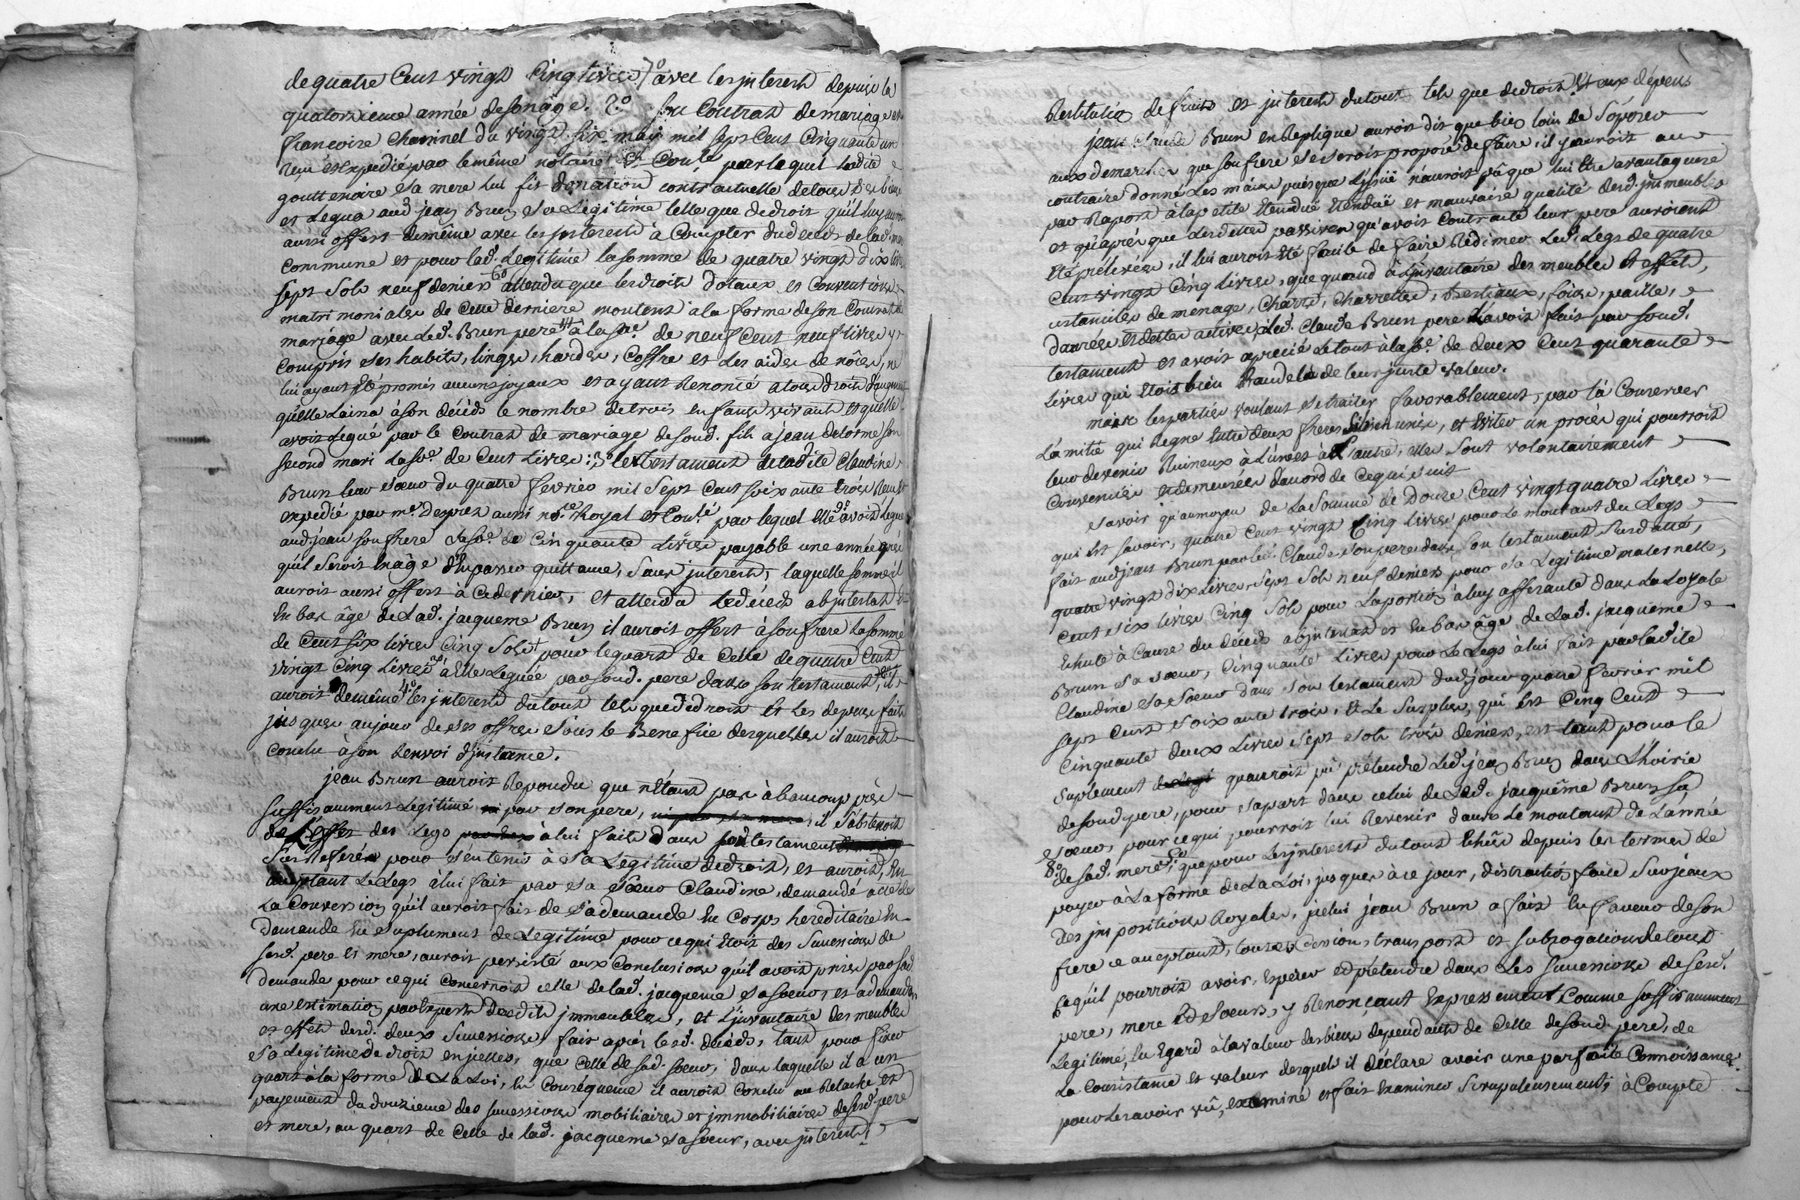 de quatre Cent vingt Cinq livres 7o avec les interest depuis la
quatorzieme année de son âge. 2o du Contrat de mariage
francoise Charinel du vingt six may mil sept Cent Cinquante un
reçu et expedié par le même notaire par lequel ladite
gouttenoire sa mere lui fit donation contractuelle de tous ses biens
et Legua aud. jean Brun sa Legitime telle que de droit qu'il luy
aussi offert de même avec les interest à Compter du decés de lad.
Commune et pour lad. Legitime la somme de quatre vingt dix
sept Sols neuf deniers 6o attendu que les droits dotaux et Conventions
matrimoniales de Cette derniere montent à la forme de son Contrat
mariage avec led. Brun pere à la so.e de neuf Cent neuf Livres y
Compris ses habits, linges, hardes, Coffre et Les aides de nôces, ne
lui ayant été promis aucuns joyaux et ayant Renoncé a tous droits
quelle Laissa à son décéds le nombre de trois enfants vivants et quelle
avoit Legué par le Contrat de mariage de sond. fils a jean delorme son
second mari La so.e de Cent Livres : 3o le testament de ladite Claudine
Brun leur soeur du quatre fevrier mil Sept Cent soixante trois Reçu et
expedié par me. Desprez aussi no.re Royal par lequel elle avoit Legué
aud. jean son frere la so.e de Cinquante Livres payable une année après
qu'il Seroit en âge d'en passer quittance, Sans interest, laquelle somme il
auroit aussi offert à Ce dernier, et attendu Le décéds abintestat
En bas âge de Lad. jacqueme Brun il auroit offert à son frere La somme
de Cent six livres Cinq Sols pour le quart de Celle de quatre Cent
vingt Cinq Livres à Elle Leguée par sond. pere dans son testament, il
auroit de même 4o les interest du tout tels que de droit Et Les depens faits
jusques aujour de ses offres Sous le Benefice desquelles il auroit
Conclu à son Renvoi d'instance.
jean Brun auroit Repondu que n'étant pas à beaucoup près
suffisamment Legitimé par son pere, il s'abstenoit
de L'effet des Legs à lui faits dans son testament
pour s'en tenir à Sa Legitime de droit, et auroit, En
acceptant Le Legs à lui fait par sa Soeur Claudine, demandé acte de
La Conversion qu'il auroit fait de Sa demande En Corps hereditaire En
demande En Suplement de Legitime pour ce qui Etoit des Successions de
sesd. pere et mere, auroit persisté aux Conclusions qu'il avoit prises par sad.
demande pour ce qui Concernoit celle de lad. jacqueme sa soeur, et a demandé
une estimation par Experts Desdits immeubles, et L'inventaire des meubles
et effets desd. deux Successions, fait après lesd. décéds, tant pour fixer
Sa Legitime de droit en icelles, que Celle de sad. soeur, dans laquelle il a un
quart à la forme de La Loi, En Consequence il auroit Conclu au Relache et
payement du douzieme des successions mobiliaires et immobiliaires de sesd. pere
et mere, au quart de Celle de lad. jacqueme sa soeur, avec interest,
Restitution de fruits et interest du tout tels que de droit, Et aux dépens
jean Claude Brun en Replique auroit dit que bien loin de
aux demarches que son frere se seroit proposé de faire, il y auroit au
contraire donné Les mains puisque L'issuë n'auroit pû que lui être avantageuse
par Raport à la petite étenduë et mauvaise qualité desd. immeubles
et qu'après que Les dettes passives qu'avoit Contracté leur pere auroient
été prélevées, il lui auroit été facile de faire Redimer Led. Legs de quatre
Cent vingt Cinq Livres, que quand à L'inventaire des meubles et effets,
ustanciles de menage, Chars, Charrettes, Bestiaux, foins, pailles,
danrées Et dettes actives, Led. Claude Brun pere L'avoit fait par sond.
testament et avoit aprecié Le tout à la so.e de deux Cent quarante
Livres qui étoit bien au delà de leur juste valeur.
mais les parties voulant se traiter favorablement, par là Conserver
L'amitié qui Regne Entre deux freres bien unis, et éviter un procès qui pourroit
leur devenir Ruineux à L'un et à L'autre, elles sont volontairement
Convenües et demeurées d'accord de Ce qui suit
Savoir qu'au moyen de La Somme de Douze Cent vingt quatre Livres
qui Est savoir, quatre Cent vingt Cinq Livres pour le montant du Legs
fait aud. jean Brun par led. Claude son pere dans son testament Surdatté,
quatre vingt dix Livres Sept Sols neuf deniers pour Sa Legitime maternelle,
Cent six Livres Cinq Sols pour La portion à luy afferante dans La Loyale
Echute à Cause du décéds abintestat et En bas âge de Lad. jacqueme
Brun sa soeur, Cinquante Livres pour Le Legs à lui fait par ladite
Claudine sa Soeur dans son testament dud. jour quatre fevrier mil
Sept Cent Soixante trois, Et Le Surplus, qui est Cinq Cent
Cinquante deux Livres Sept Sols trois deniers, est tant pour le
Suplement qu'auroit pû prétendre Led. jean Brun dans L'hoirie
de sond. pere, pour sa part dans celui de Lad. jacquême Brun sa
Soeur, pour ce qui pourroit lui Revenir dans Le montant de L'année
8o de sad. mere, que pour Les interests du tout Echûs depuis les termes de
payer à La forme de La Loi, jusques à ce jour, distraction faite d'iceux
des impositions Royales, icelui jean Brun a fait En faveur de son
frere ce acceptant, toutes Cessions, transport et subrogation de tout
Ce qu'il pourroit avoir, Esperer et prétendre dans Les Successions de sesd.
pere, mere Et Soeurs, y Renonçant Expressement Comme suffisamment
Legitimé, Eu Egard à la valeur des biens dependants de Celle de sond. pere, de
La Consistance et valeur desquels il déclare avoir une parfaite Connoissance
pour les avoir vû, examiné et fait Examiner Scrupuleusement, à Compte